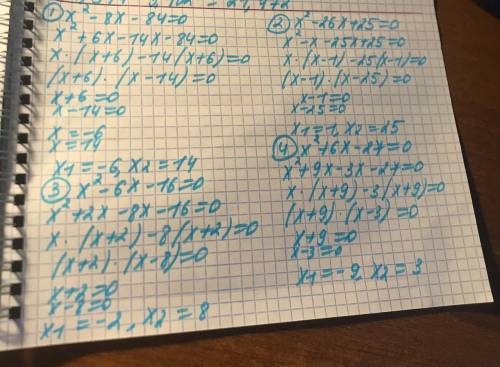 ① x² - 8x - 84 = 0
x² + 6x - 14x - 84 = 0
x · (x+6) - 14(x+6) = 0
(x+6) · (x-14) = 0
x+6=0
x-14=0
x=-6
x=14
x1 = -6, x2 = 14
③ x² - 6x - 16 = 0
x² + 2x - 8x - 16 = 0
x · (x+2) - 8(x+2) = 0
(x+2) · (x-8) = 0
x+2=0
x-8=0
x1 = -2, x2 = 8
② x² - 26x + 25 = 0
x² - x - 25x + 25 = 0
x · (x-1) - 25(x-1) = 0
(x-1) · (x-25) = 0
x-1=0
x-25=0
x1 = 1, x2 = 25
④ x² + 6x - 27 = 0
x² + 9x - 3x - 27 = 0
x · (x+9) - 3(x+9) = 0
(x+9) · (x-3) = 0
x+9=0
x-3=0
x1 = -9 x2 = 3